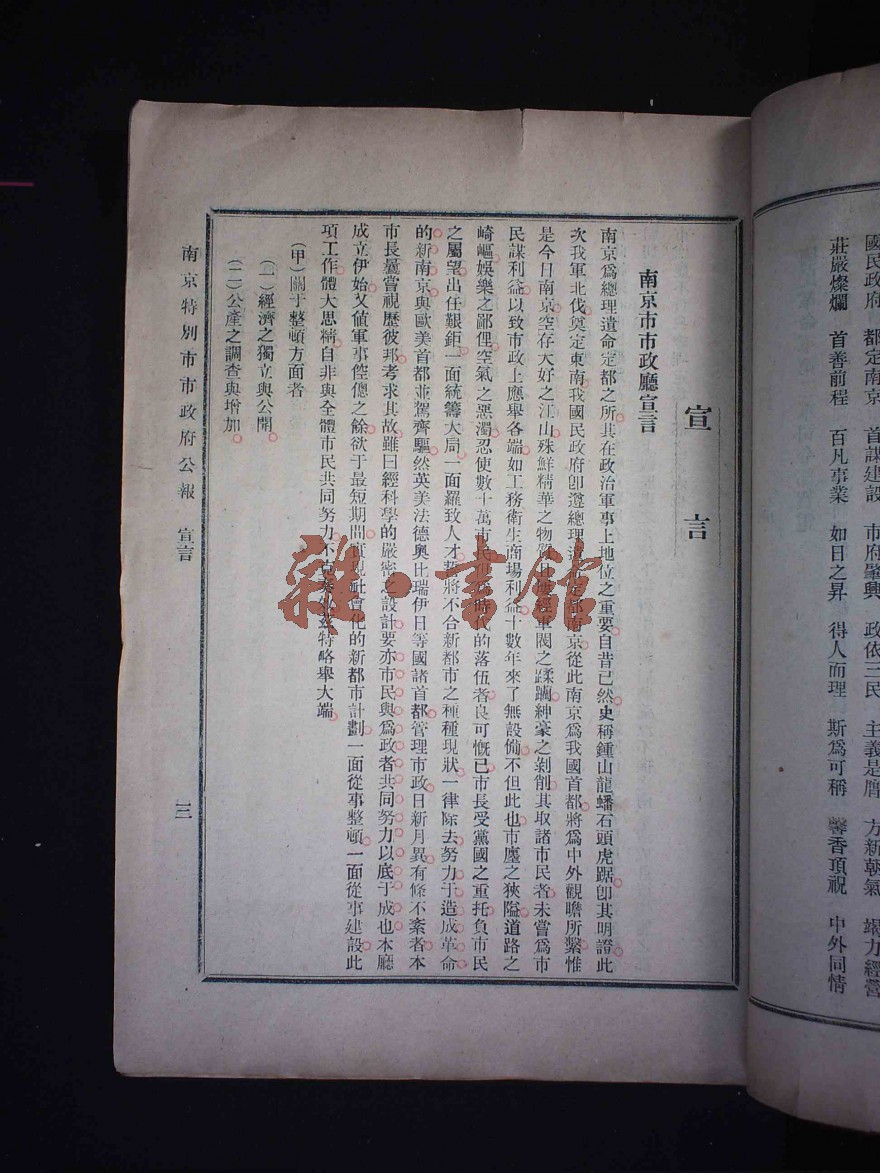 國民政府　都定南京　首謀建設　市府肇興　政依三民　主義是膺　方新朝氣　竭力經營
莊嚴燦爛　首善前程　百凡事業　如日之昇　得人而理　斯爲可稱　馨香頂祝　中外同情
宣言
南京市市政廳宣言
南京爲總理遺命定都之所其在政治軍事上地位之重要自昔已然史稱鍾山龍蟠石頭虎踞卽其明證此
次我軍北伐奠定東南我國民政府卽遵總理遺 定都南京從此南京爲我國首都將爲中外觀瞻所繫惟
是今日南京空存大好之江山殊鮮精華之物質 經軍閥之蹂躪紳豪之剝削其取諸市民者未嘗爲市
民謀利益以致市政上應舉各端如工務衛生商場利益十數年來了無設備不但此也市廛之狹隘道路之
崎嶇娛樂之鄙俚空氣之惡濁忍使數十萬市民 時代的落伍者良可慨已市長受黨國之重托負市民
之屬望出任艱鉅一面統籌大局一面羅致人才誓將不合新都市之種種現狀一律除去努力于造成革命
的新南京與歐美首都並駕齊驅然英美法德奧比瑞伊日等國諸首都管理市政日新月異有條不紊者本
市長曩嘗視歷彼邦考求其故雖曰經科學的嚴密之設計要亦市民與爲政者共同努力以底于成也本廳
成立伊始又値軍事倥傯之餘欲于最短期間實現社會化的新都市計劃一面從事整頓一面從事建設此
項工作體大思精自非與全體市民共同努力不 特略舉大端
（甲）關于整頓方面者
（一）經濟之獨立與公開
（二）公產之調查與增加
南京特別市市政府公報　宣言
三
雜·書館